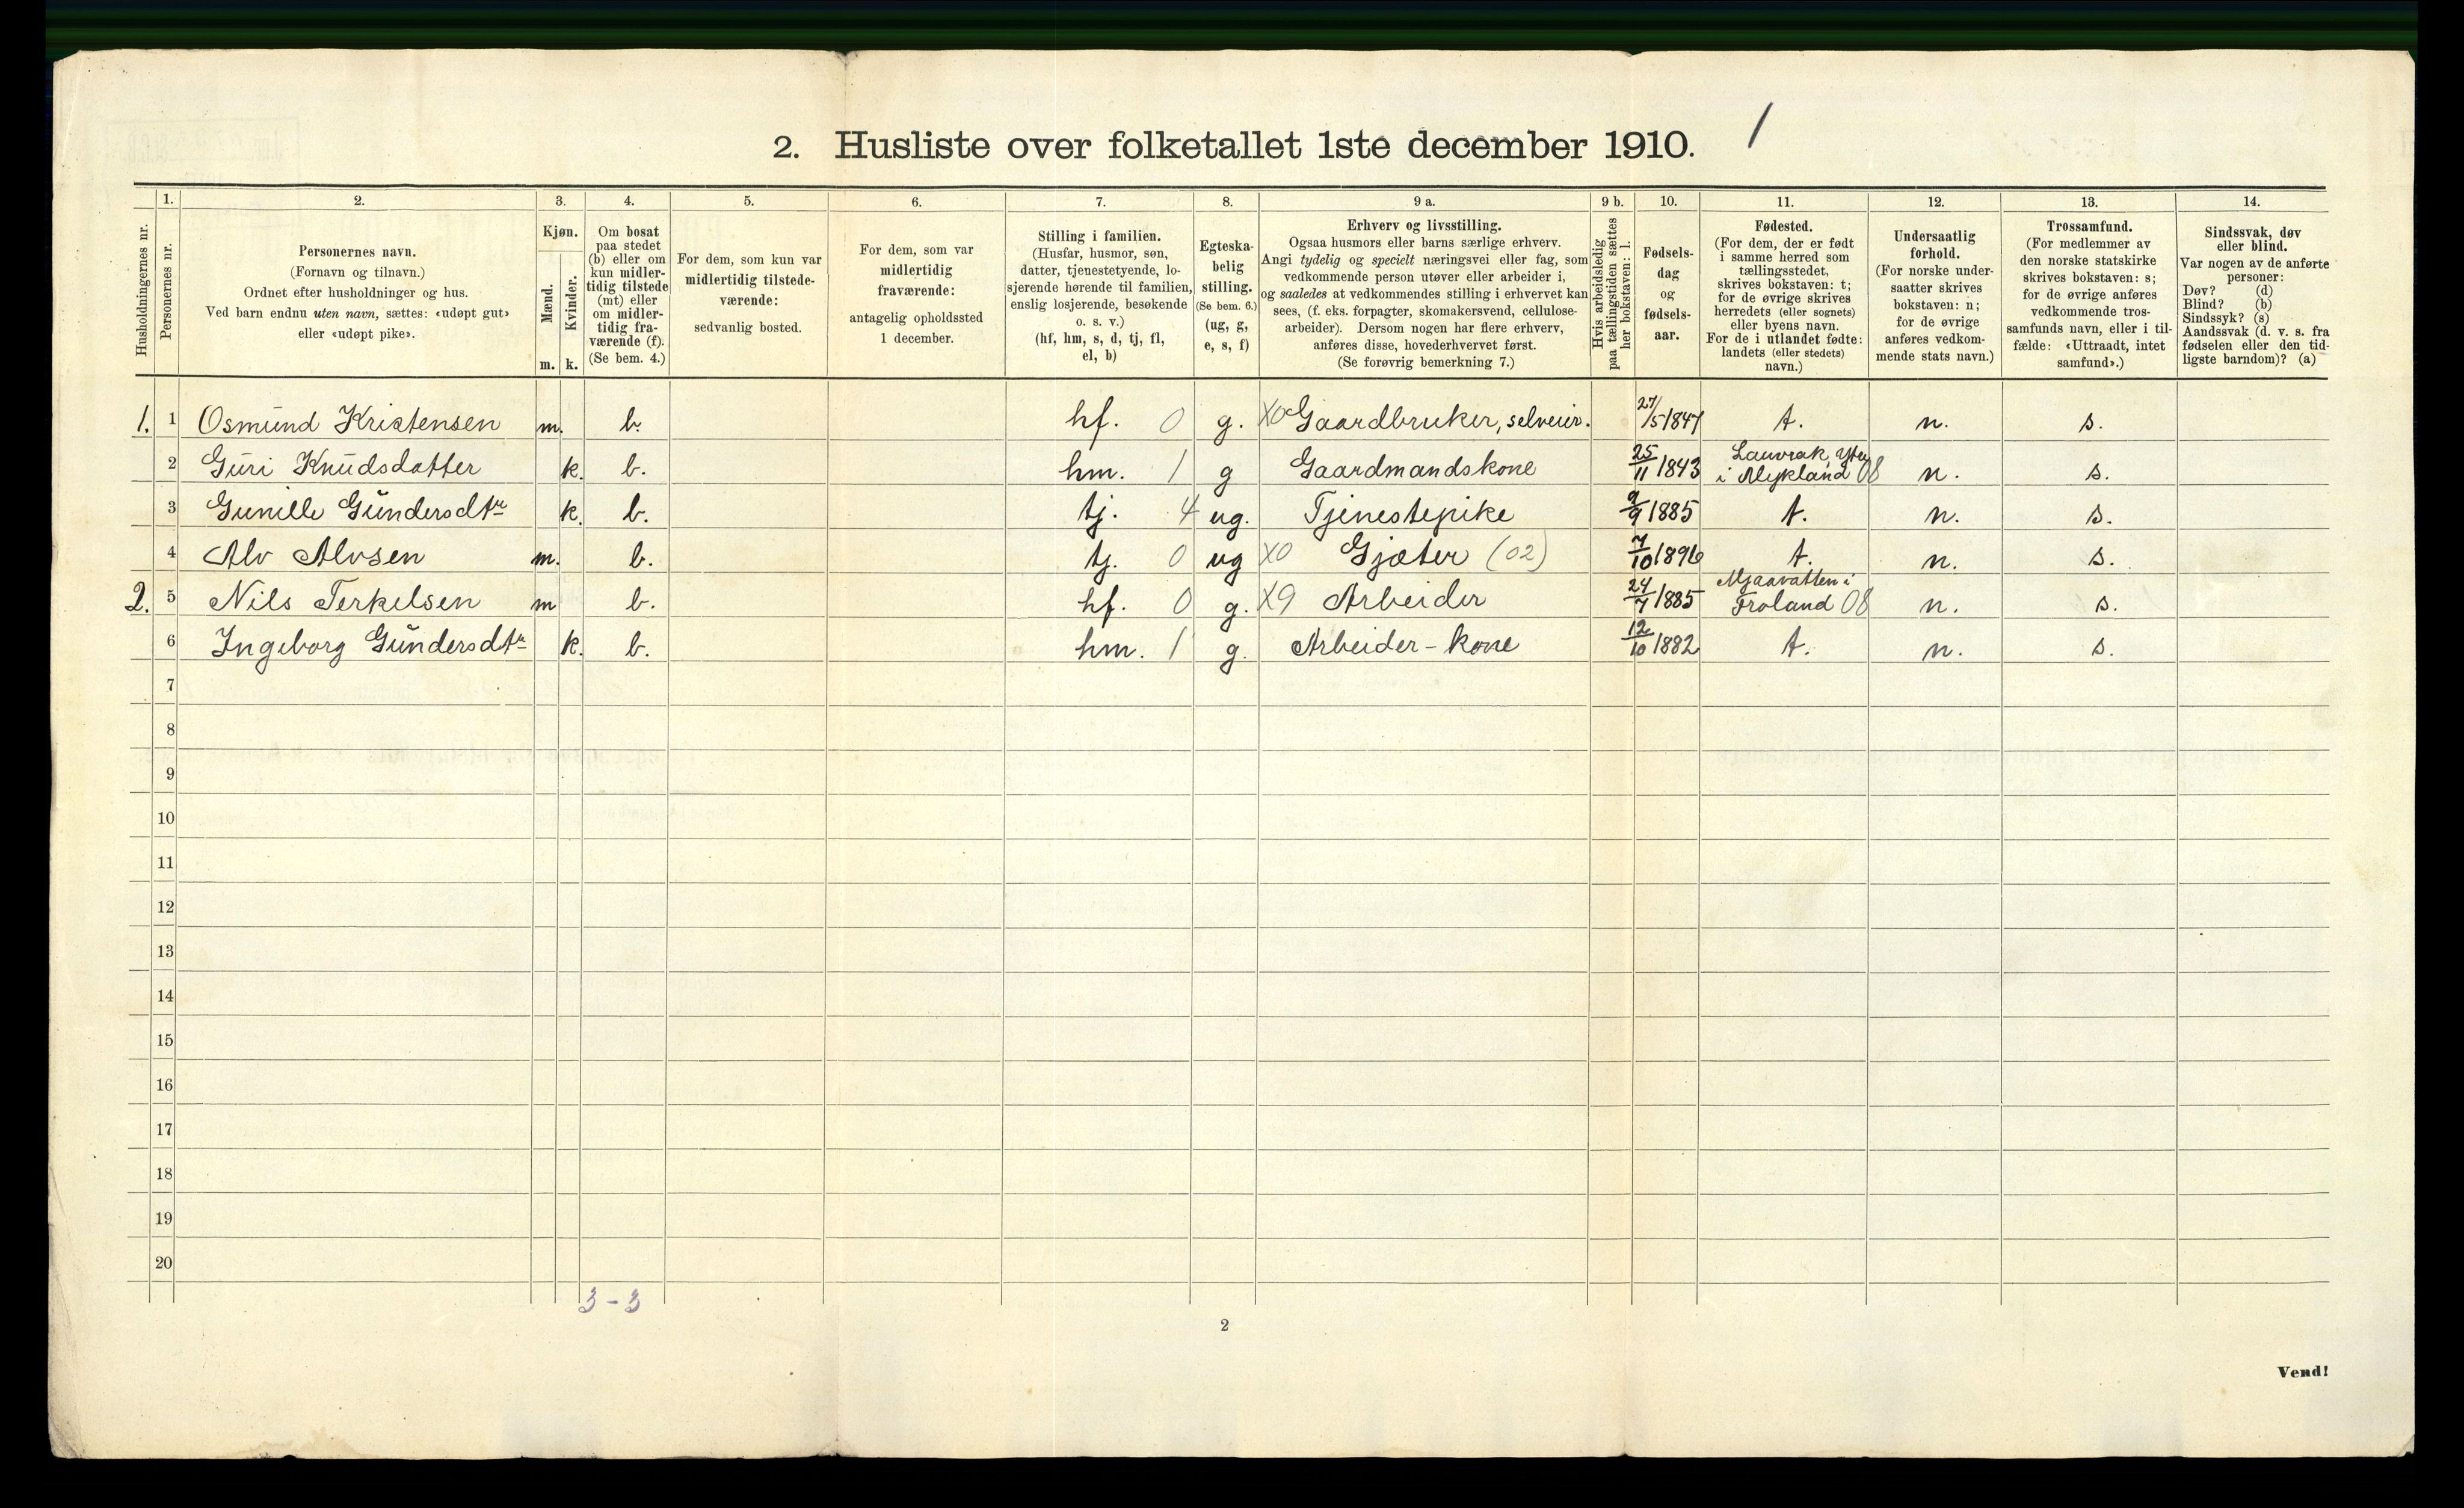 2. Husliste over folketallet 1ste december 1910. 1
Husholdningernes nr.
1.
Personernes nr.
2.
Personernes navn.
(Fornavn og tilnavn.)
Ordnet efter husholdninger og hus.
Ved barn endnu uten navn, sættes: «udøpt gut»
eller «udøpt pike».
3.
Kjøn.
Mænd.
Kvinder.
m. k.
4.
Om bosat
paa stedet
(b) eller om
kun midler-
tidig tilstede
(mt) eller
om midler-
tidig fra-
værende (f).
(Se bem. 4.)
5.
For dem, som kun var
midlertidig tilstede-
værende:
sedvanlig bosted.
6.
For dem, som var
midlertidig
fraværende:
antagelig opholdssted
1 december.
7.
Stilling i familien.
(Husfar, husmor, søn,
datter, tjenestetyende, lo-
sjerende hørende til familien,
enslig losjerende, besøkende
o. s. v.)
(hf, hm, s, d, tj, fl,
el, b)
8.
Egteska-
belig
stilling.
(Se bem. 6.)
(ug, g,
e, s, f)
9 a.
Erhverv og livsstilling.
Ogsaa husmors eller barns særlige erhverv.
Angi tydelig og specielt næringsvei eller fag, som
vedkommende person utøver eller arbeider i,
og saaledes at vedkommendes stilling i erhvervet kan
sees, (f. eks. forpagter, skomakersvend, cellulose-
arbeider). Dersom nogen har flere erhverv,
anføres disse, hovederhvervet først.
(Se forøvrig bemerkning 7.)
9 b.
Hvis arbeidsledig
paa tællingstiden sættes
her bokstaven: l.
10.
Fødsels-
dag
og
fødsels-
aar.
11.
Fødested.
(For dem, der er født
i samme herred som
tællingsstedet,
skrives bokstaven: t;
for de øvrige skrives
herredets (eller sognets)
eller byens navn.
For de i utlandet fødte:
landets (eller stedets)
navn.)
12.
Undersaatlig
forhold.
(For norske under-
saatter skrives
bokstaven: n;
for de øvrige
anføres vedkom-
mende stats navn.)
13.
Trossamfund.
(For medlemmer av
den norske statskirke
skrives bokstaven: s;
for de øvrige anføres
vedkommende tros-
samfunds navn, eller i til-
fælde: «Uttraadt, intet
samfund».)
14.
Sindssvak, døv
eller blind.
Var nogen av de anførte
personer:
Døv? (d)
Blind? (b)
Sindssyk? (s)
Aandssvak (d. v. s. fra
fødselen eller den tid-
ligste barndom)? (a)
1. 1 Osmund Kristensen m. b. hf. 0 g. X0 Gaardbruker, selveier. 27/5 1847 t. n. s.
2 Guri Knudsdatter k. b. hm. 1 g Gaardmandskone 25/11 1843 Lauvrak i Mykland 08 n. s.
3 Gunille Gundersdtr k. b. tj. 4 ug. Tjenestepike 9/9 1885 t. n. s.
4 Alv Alvsen m. b. tj. 0 ug X0 Gjæter (02) 7/10 1896 t. n. s.
2. 5 Nils Terkelsen m b. hf. 0 g. X9 Arbeider 24/7 1885 Mjaavatten i Froland 08 n. s.
6 Ingeborg Gundersdtr k. b. hm. 1 g. Arbeider-kone 12/10 1882 t. n. s.
7
8
9
10
11
12
13
14
15
16
17
18
19
20
3-3
2
Vend!